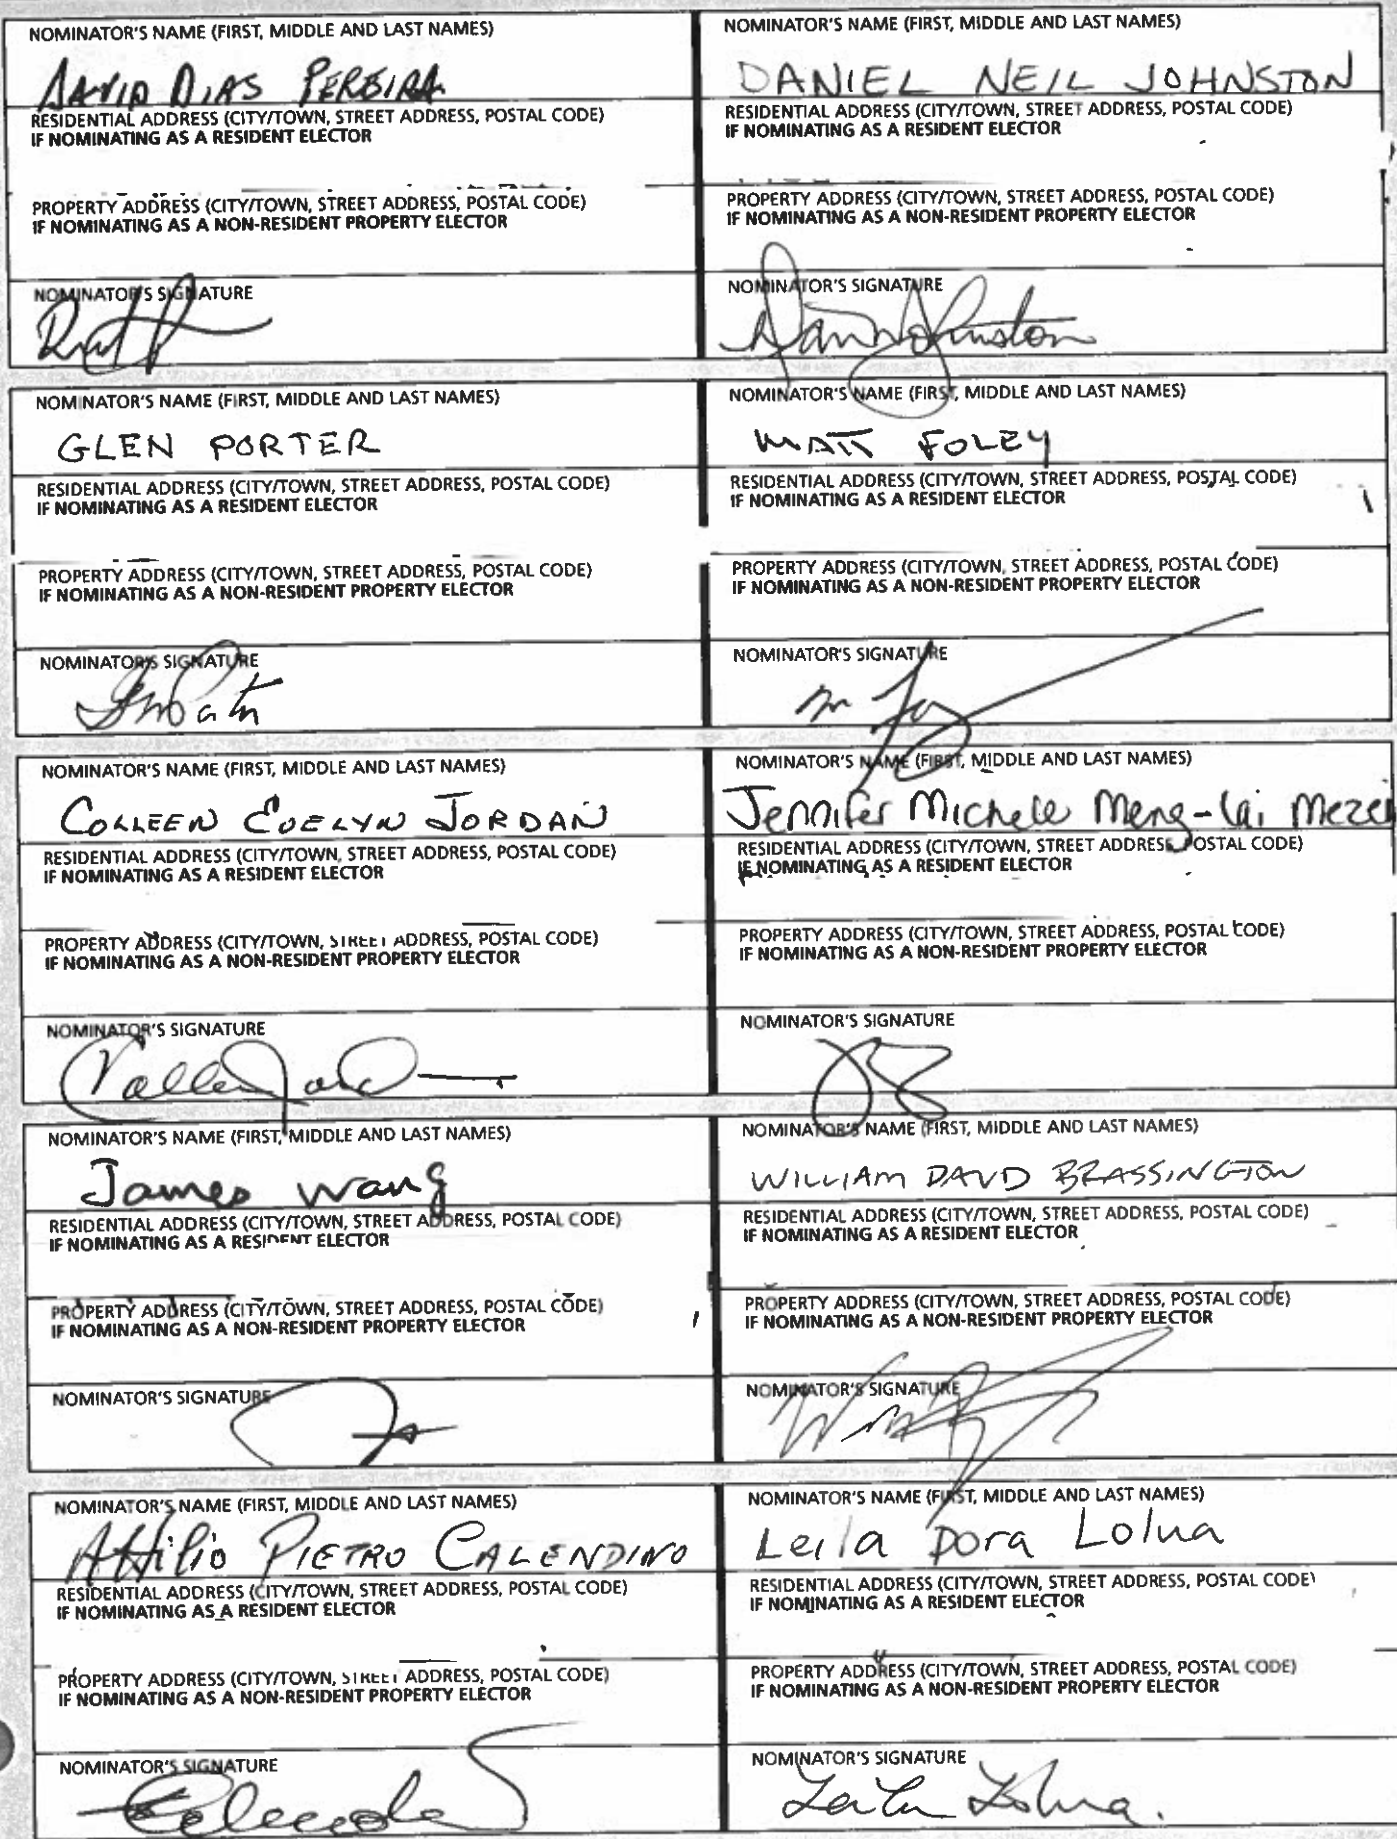 NOMINATOR'S NAME (FIRST, MIDDLE AND LAST NAMES)
DAVID DIAS PEREIRA
RESIDENTIAL ADDRESS (CITY/TOWN, STREET ADDRESS, POSTAL CODE)
IF NOMINATING AS A RESIDENT ELECTOR
PROPERTY ADDRESS (CITY/TOWN, STREET ADDRESS, POSTAL CODE)
IF NOMINATING AS A NON-RESIDENT PROPERTY ELECTOR
NOMINATOR'S SIGNATURE
NOMINATOR'S NAME (FIRST, MIDDLE AND LAST NAMES)
DANIEL NEIL JOHNSTON
RESIDENTIAL ADDRESS (CITY/TOWN, STREET ADDRESS, POSTAL CODE)
IF NOMINATING AS A RESIDENT ELECTOR
PROPERTY ADDRESS (CITY/TOWN, STREET ADDRESS, POSTAL CODE)
IF NOMINATING AS A NON-RESIDENT PROPERTY ELECTOR
NOMINATOR'S SIGNATURE
Dan Johnston
NOMINATOR'S NAME (FIRST, MIDDLE AND LAST NAMES)
GLEN PORTER
RESIDENTIAL ADDRESS (CITY/TOWN, STREET ADDRESS, POSTAL CODE)
IF NOMINATING AS A RESIDENT ELECTOR
PROPERTY ADDRESS (CITY/TOWN, STREET ADDRESS, POSTAL CODE)
IF NOMINATING AS A NON-RESIDENT PROPERTY ELECTOR
NOMINATOR'S SIGNATURE
NOMINATOR'S NAME (FIRST, MIDDLE AND LAST NAMES)
MATT FOLEY
RESIDENTIAL ADDRESS (CITY/TOWN, STREET ADDRESS, POSTAL CODE)
IF NOMINATING AS A RESIDENT ELECTOR
PROPERTY ADDRESS (CITY/TOWN, STREET ADDRESS, POSTAL CODE)
IF NOMINATING AS A NON-RESIDENT PROPERTY ELECTOR
NOMINATOR'S SIGNATURE
NOMINATOR'S NAME (FIRST, MIDDLE AND LAST NAMES)
COLLEEN EVELYN JORDAN
RESIDENTIAL ADDRESS (CITY/TOWN, STREET ADDRESS, POSTAL CODE)
IF NOMINATING AS A RESIDENT ELECTOR
PROPERTY ADDRESS (CITY/TOWN, STREET ADDRESS, POSTAL CODE)
IF NOMINATING AS A NON-RESIDENT PROPERTY ELECTOR
NOMINATOR'S SIGNATURE
NOMINATOR'S NAME (FIRST, MIDDLE AND LAST NAMES)
Jennifer Michele Meng-Lai Mezei
RESIDENTIAL ADDRESS (CITY/TOWN, STREET ADDRESS, POSTAL CODE)
IF NOMINATING AS A RESIDENT ELECTOR
PROPERTY ADDRESS (CITY/TOWN, STREET ADDRESS, POSTAL CODE)
IF NOMINATING AS A NON-RESIDENT PROPERTY ELECTOR
NOMINATOR'S SIGNATURE
NOMINATOR'S NAME (FIRST, MIDDLE AND LAST NAMES)
James Wang
RESIDENTIAL ADDRESS (CITY/TOWN, STREET ADDRESS, POSTAL CODE)
IF NOMINATING AS A RESIDENT ELECTOR
PROPERTY ADDRESS (CITY/TOWN, STREET ADDRESS, POSTAL CODE)
IF NOMINATING AS A NON-RESIDENT PROPERTY ELECTOR
NOMINATOR'S SIGNATURE
NOMINATOR'S NAME (FIRST, MIDDLE AND LAST NAMES)
WILLIAM DAVD BRASSINGTON
RESIDENTIAL ADDRESS (CITY/TOWN, STREET ADDRESS, POSTAL CODE)
IF NOMINATING AS A RESIDENT ELECTOR
PROPERTY ADDRESS (CITY/TOWN, STREET ADDRESS, POSTAL CODE)
IF NOMINATING AS A NON-RESIDENT PROPERTY ELECTOR
NOMINATOR'S SIGNATURE
NOMINATOR'S NAME (FIRST, MIDDLE AND LAST NAMES)
Attilio PIETRO CALENDINO
RESIDENTIAL ADDRESS (CITY/TOWN, STREET ADDRESS, POSTAL CODE)
IF NOMINATING AS A RESIDENT ELECTOR
PROPERTY ADDRESS (CITY/TOWN, STREET ADDRESS, POSTAL CODE)
IF NOMINATING AS A NON-RESIDENT PROPERTY ELECTOR
NOMINATOR'S SIGNATURE
NOMINATOR'S NAME (FIRST, MIDDLE AND LAST NAMES)
Leila Dora Lolua
RESIDENTIAL ADDRESS (CITY/TOWN, STREET ADDRESS, POSTAL CODE)
IF NOMINATING AS A RESIDENT ELECTOR
PROPERTY ADDRESS (CITY/TOWN, STREET ADDRESS, POSTAL CODE)
IF NOMINATING AS A NON-RESIDENT PROPERTY ELECTOR
NOMINATOR'S SIGNATURE
Leila Lolua.